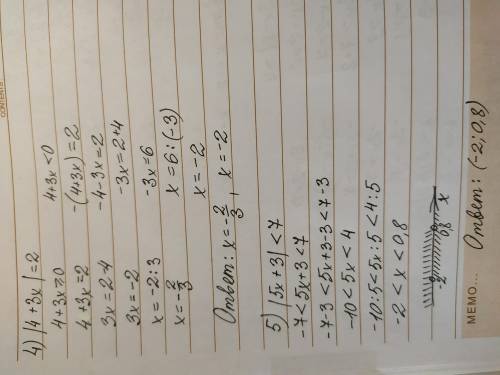 CONTENTS
4) |4 + 3x| = 2
4+3x≥0 4+3x<0
4+3x=2 -(4+3x)=2
3x=2-4 -4-3x=2
3x=-2 -3x=2+4
x=-2:3 -3x=6
x=-2/3 x=6:(-3)
x=-2
Ответ: x=-2/3, x=-2
5) |5x+3|<7
-7<5x+3<7
-7-3<5x+3-3<7-3
-10<5x<4
-10:5<5x:5<4:5
-2<x<0,8
-2 0,8 x
MEMO... Ответ: (-2; 0,8)